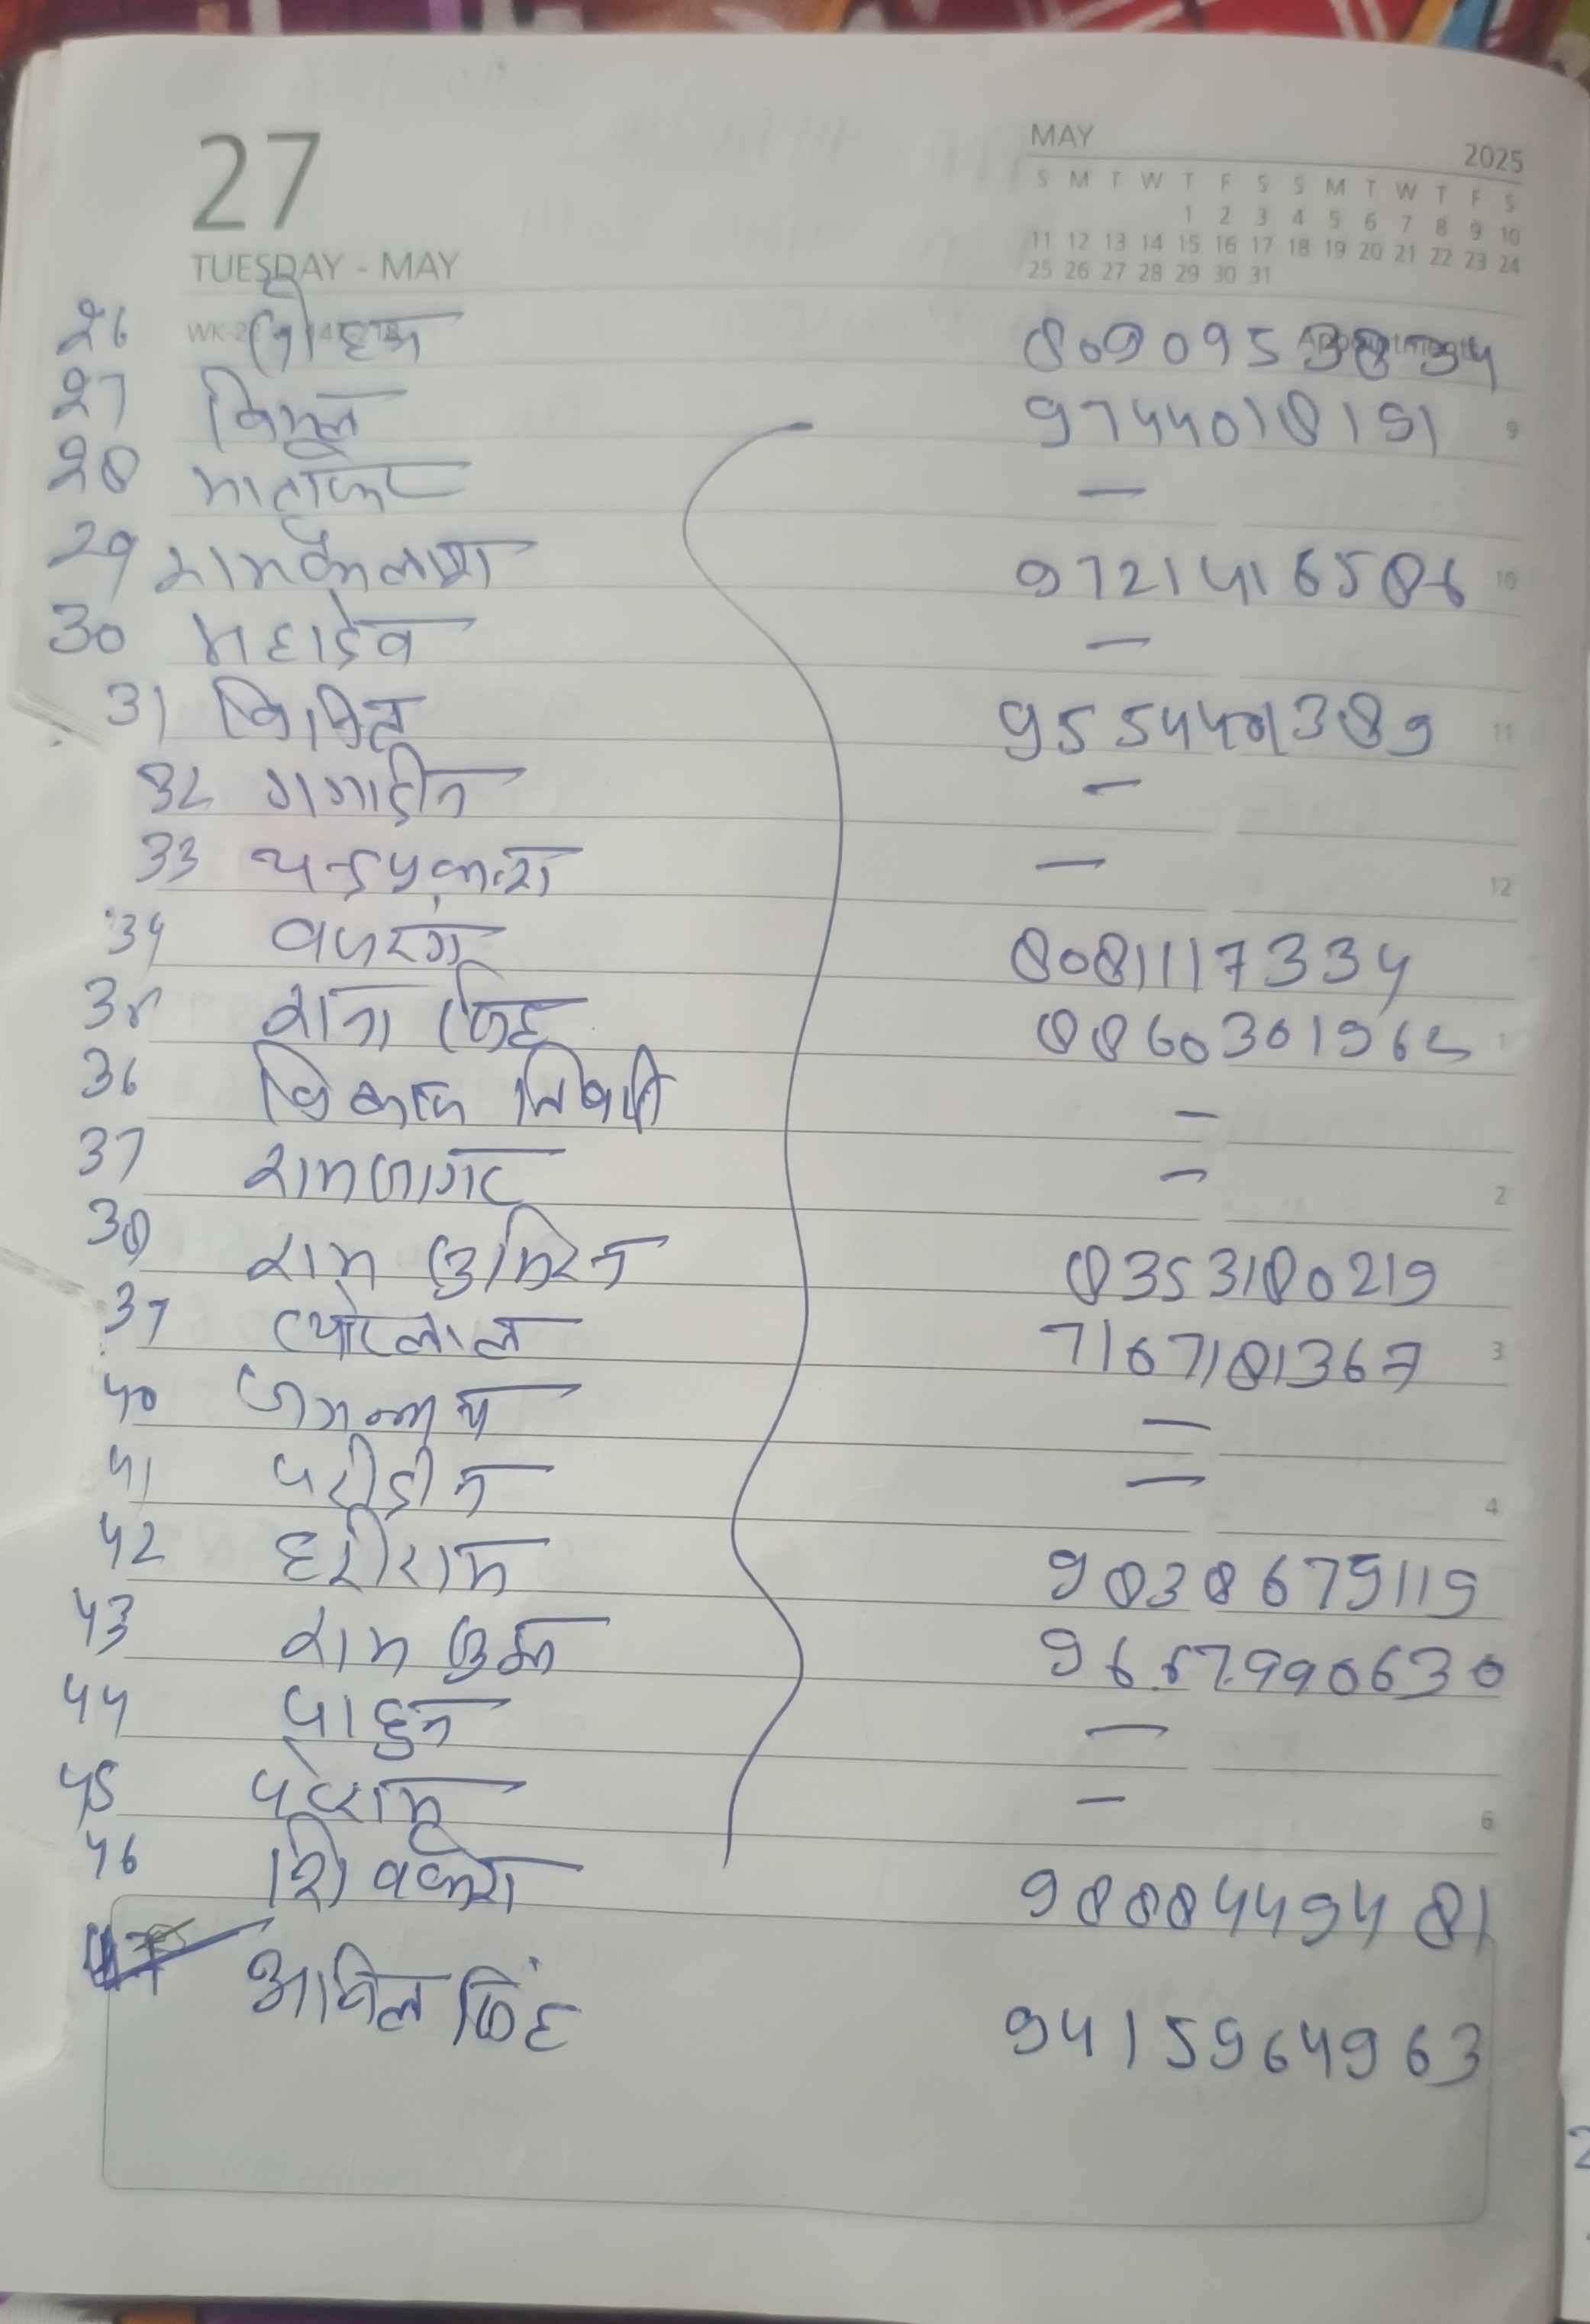 27
TUESDAY - MAY
MAY 2025
S M T W T F S S M T W T F S
1 2 3 4 5 6 7 8 9 10
11 12 13 14 15 16 17 18 19 20 21 22 23 24
25 26 27 28 29 30 31
26 8090953834
27 विमल 9744018191 9
28 —
29 रामकैलाश 9721416586 10
30 महादेव —
31 9554401389 11
32 गगादीन —
33 चन्द्रप्रकाश — 12
34 बजरंग 8081117334
35 राजा सिंह 8860301965 1
36 विकास त्रिपाठी —
37 रामजागर — 2
38 राम सुमिरन 8353180219
37 प्यारेलाल 7167181367 3
40 जगन्नाथ —
41 परीदीन — 4
42 हरीराम 9838679119
43 राम सुख 9667990630
44 पाहुन —
45 — 6
46 9888449481
अनिल सिंह 9415964963